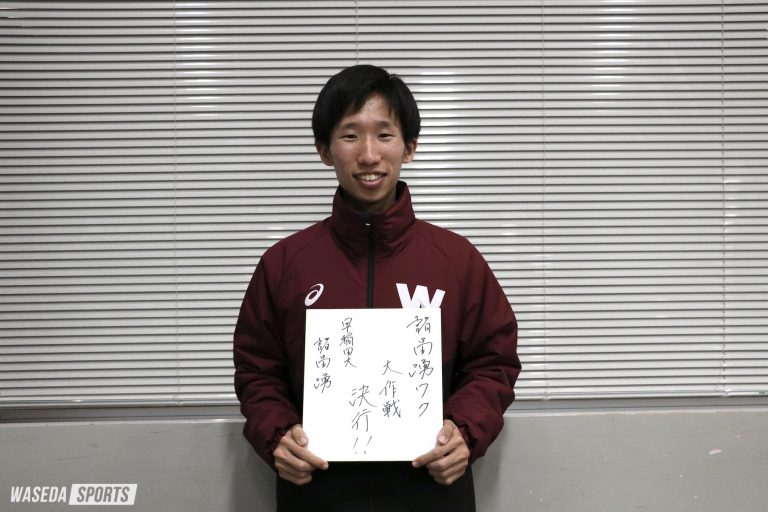 W
諸冨湧ワク
大作戦
決行!!
早稲田大
諸冨湧
WASEDA SPORTS